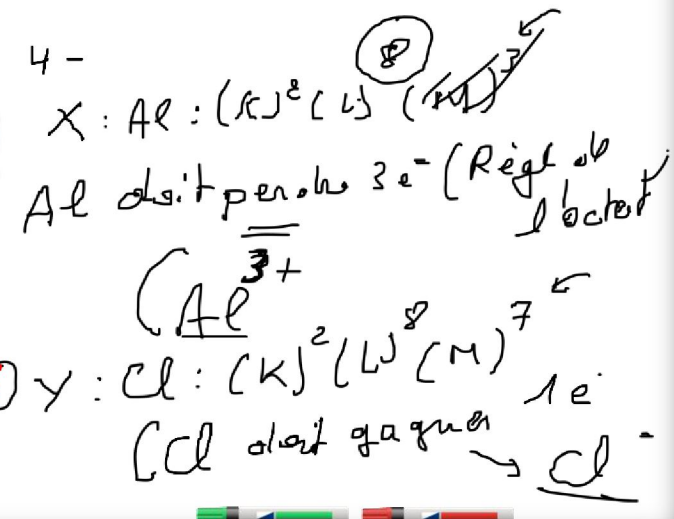 4 -
X : Al : (K)² (L)⁸ (M)³
Al doit perdre 3 e⁻ (Règle de l'octet
(Al³⁺
Y : Cl : (K)² (L)⁸ (M)⁷
(Cl doit gagner 1 e⁻ → Cl⁻